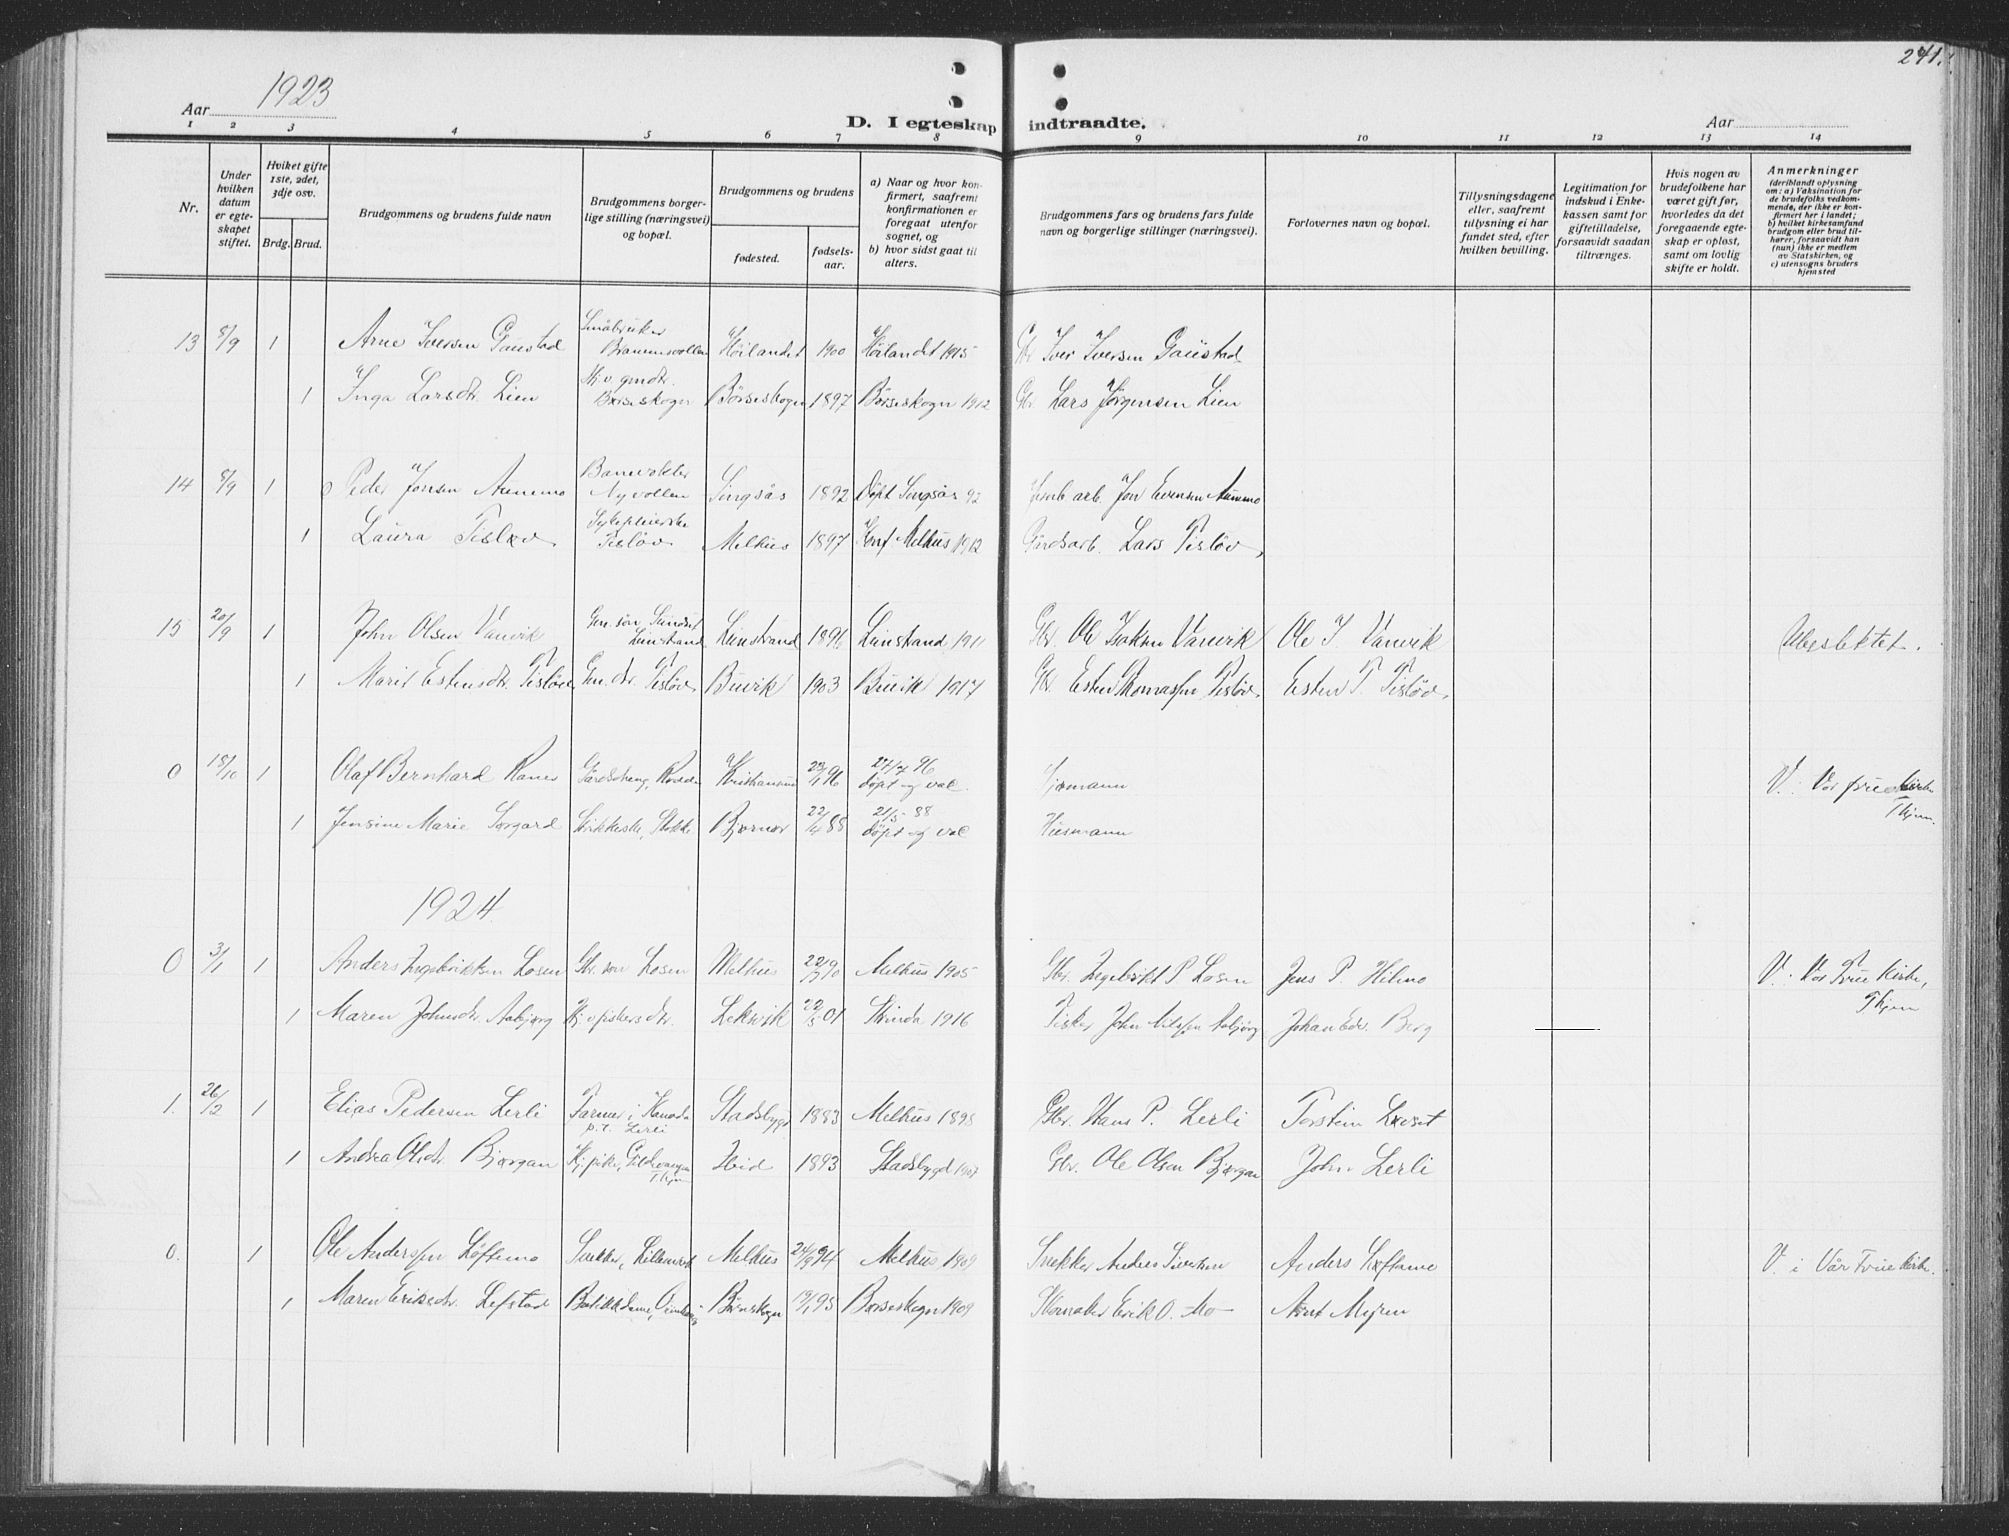 241.
Aar 1923
D. I egteskap indtraadte.
Aar
1 2 3 4 5 6 7 8 9 10 11 12 13 14
Nr.
Under hvilken datum er egteskapet stiftet.
Hviket gifte 1ste, 2det, 3dje osv.
Brdg. Brud.
Brudgommens og brudens fulde navn
Brudgommens borgerlige stilling (næringsvei) og bopæl.
Brudgommens og brudens
fødested.
fødselsaar.
a) Naar og hvor konfirmert, saafremt konfirmationen er foregaat utenfor sognet, og
b) hvor sidst gaat til alters.
Brudgommens fars og brudens fars fulde navn og borgerlige stillinger (næringsvei).
Forlovernes navn og bopæl.
Tillysningsdagene eller, saafremt tillysning ei har fundet sted, efter hvilken bevilling.
Legitimation for indskud i Enkekassen samt for giftetilladelse, forsaavidt saadan tiltrænges.
Hvis nogen av brudefolkene har været gift før, hvorledes da det foregaaende egteskap er opløst, samt om lovlig skifte er holdt.
Anmerkninger
(deriblandt oplysning om: a) Vaksination for de brudefolks vedkommende, der ikke er konfirmert her i landet; b) hvilket kirkesamfund brudgom eller brud tilhører, forsaavidt han (hun) ikke er medlem av Statskirken, og c) utensogns bruders hjemsted
13 8/9 1 Arne Iversen Gaustad Småbruker Brammsvollen Hölandet 1900 Hölandet 1915 Gbr Iver Iversen Gaustad
1 Inga Larsdtr. Lien Hj.v. gmdtr. Børseskogn Børseskogn 1897 Børseskogn 1912 Gbr. Lars Jørgensen Lien
14 8/9 1 Peder Jonsen Aunemo Banevokter Nyvollen Singsås 1892 Døpt Singsås 92 Jernb arb. Jon Evensen Aunemo
1 Laura Tisløv Sykepleierske Tisløv Melhus 1897 Konf Melhus 1912 Gårdsarb. Lars Tisløv
15 20/9 1 John Olsen Vanvik Gm. søn Leinstrand 1896 Leinstrand 1911 Gbr. Ole Isaksen Vanvik Ole I. Vanvik Ubeslektet.
1 Marit Estensdtr. Tisløv Gm. dtr. Tisløv Buvik 1903 Buvik 1917 Gbr. Esten Thomassen Tisløv Esten T. Tisløv
0 18/10 1 Olaf Bernhard Ranes Kristiansund 96 døpt og vac. V. Vor frue kirke Thjem.
1 Jensine Marie Sørgard Bjørnør 22/4 88 21/5 88 døpt og vac Husmann
1924.
0 3/1 1 Anders Ingebriktsen Losen Gbr. søn Losen Melhus 90 Melhus 1905 Gbr. Ingebrikt P Losen Jens P. Hilmo V. Vor Frue Kirke, Thjem
1 Maren Johnsdtr. Aabjørg Hj. v fiskersdtr. Leksvik 22/5 01 Strinda 1916 Fisker John Nilssen Aabjørg Johan Edv. Berg
1. 26/2 1 Elias Pedersen Lerli Farmer i Kanada p.t. Lerli Stadsbygd 1883 Melhus 1898 Gbr. Hans P. Lerli Torstein Løvset
1 Andrea Olsdtr. Bjørgan Hj. pike, Thjem Heid 1893 Stadsbygd 1907 Gbr. Ole Olsen Bjørgan John Lerli
0. 1 Ole Anderssen Løftemo Snekker, Melhus 94 Melhus 1909 Snekker Anders Sivertsen Anders Løftamo V. i Vår Frue Kirke.
1 Maren Eriksdtr. Lefstad Butikkdame, Børseskogn 95 Børseskogn 1909 Skomaker Erik O. Mo Arnt Myren